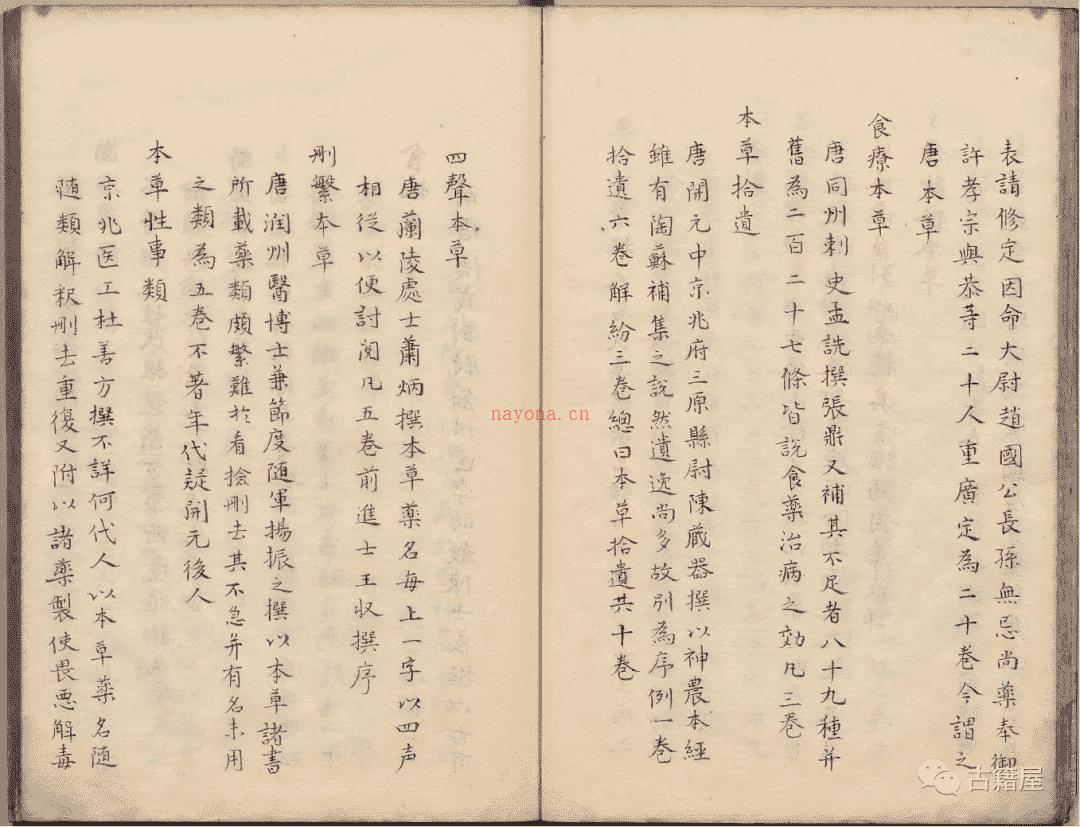 表請修定因命大尉趙國公長孫無忌尚藥奉御
許孝宗與恭等二十人重廣定為二十卷今謂之
唐本草
食療本草
唐同州刺史孟詵撰張鼎又補其不足者八十九種并
舊為二百二十七條皆說食藥治病之効凡三卷
本草拾遺
唐開元中京兆府三原縣尉陳蔵器撰以神農本經
雖有陶蘇補集之說然遺逸尚多故別為序例一卷
拾遺六卷解紛三卷總曰本草拾遺共十卷
四聲本草
唐蘭陵處士蕭炳撰本草藥名每上一字以四声
相從以便討閱凡五卷前進士王収撰序
刪繁本草
唐潤州醫博士兼節度随軍揚振之撰以本草諸書
所載藥類頗繁難於看撿刪去其不急并有名未用
之類為五卷不著年代疑開元後人
本草性事類
京兆医工杜善方撰不詳何代人以本草藥名随
随類解釈刪去重復又附以諸藥製使畏悪解毒
nayona.cn
古籍屋